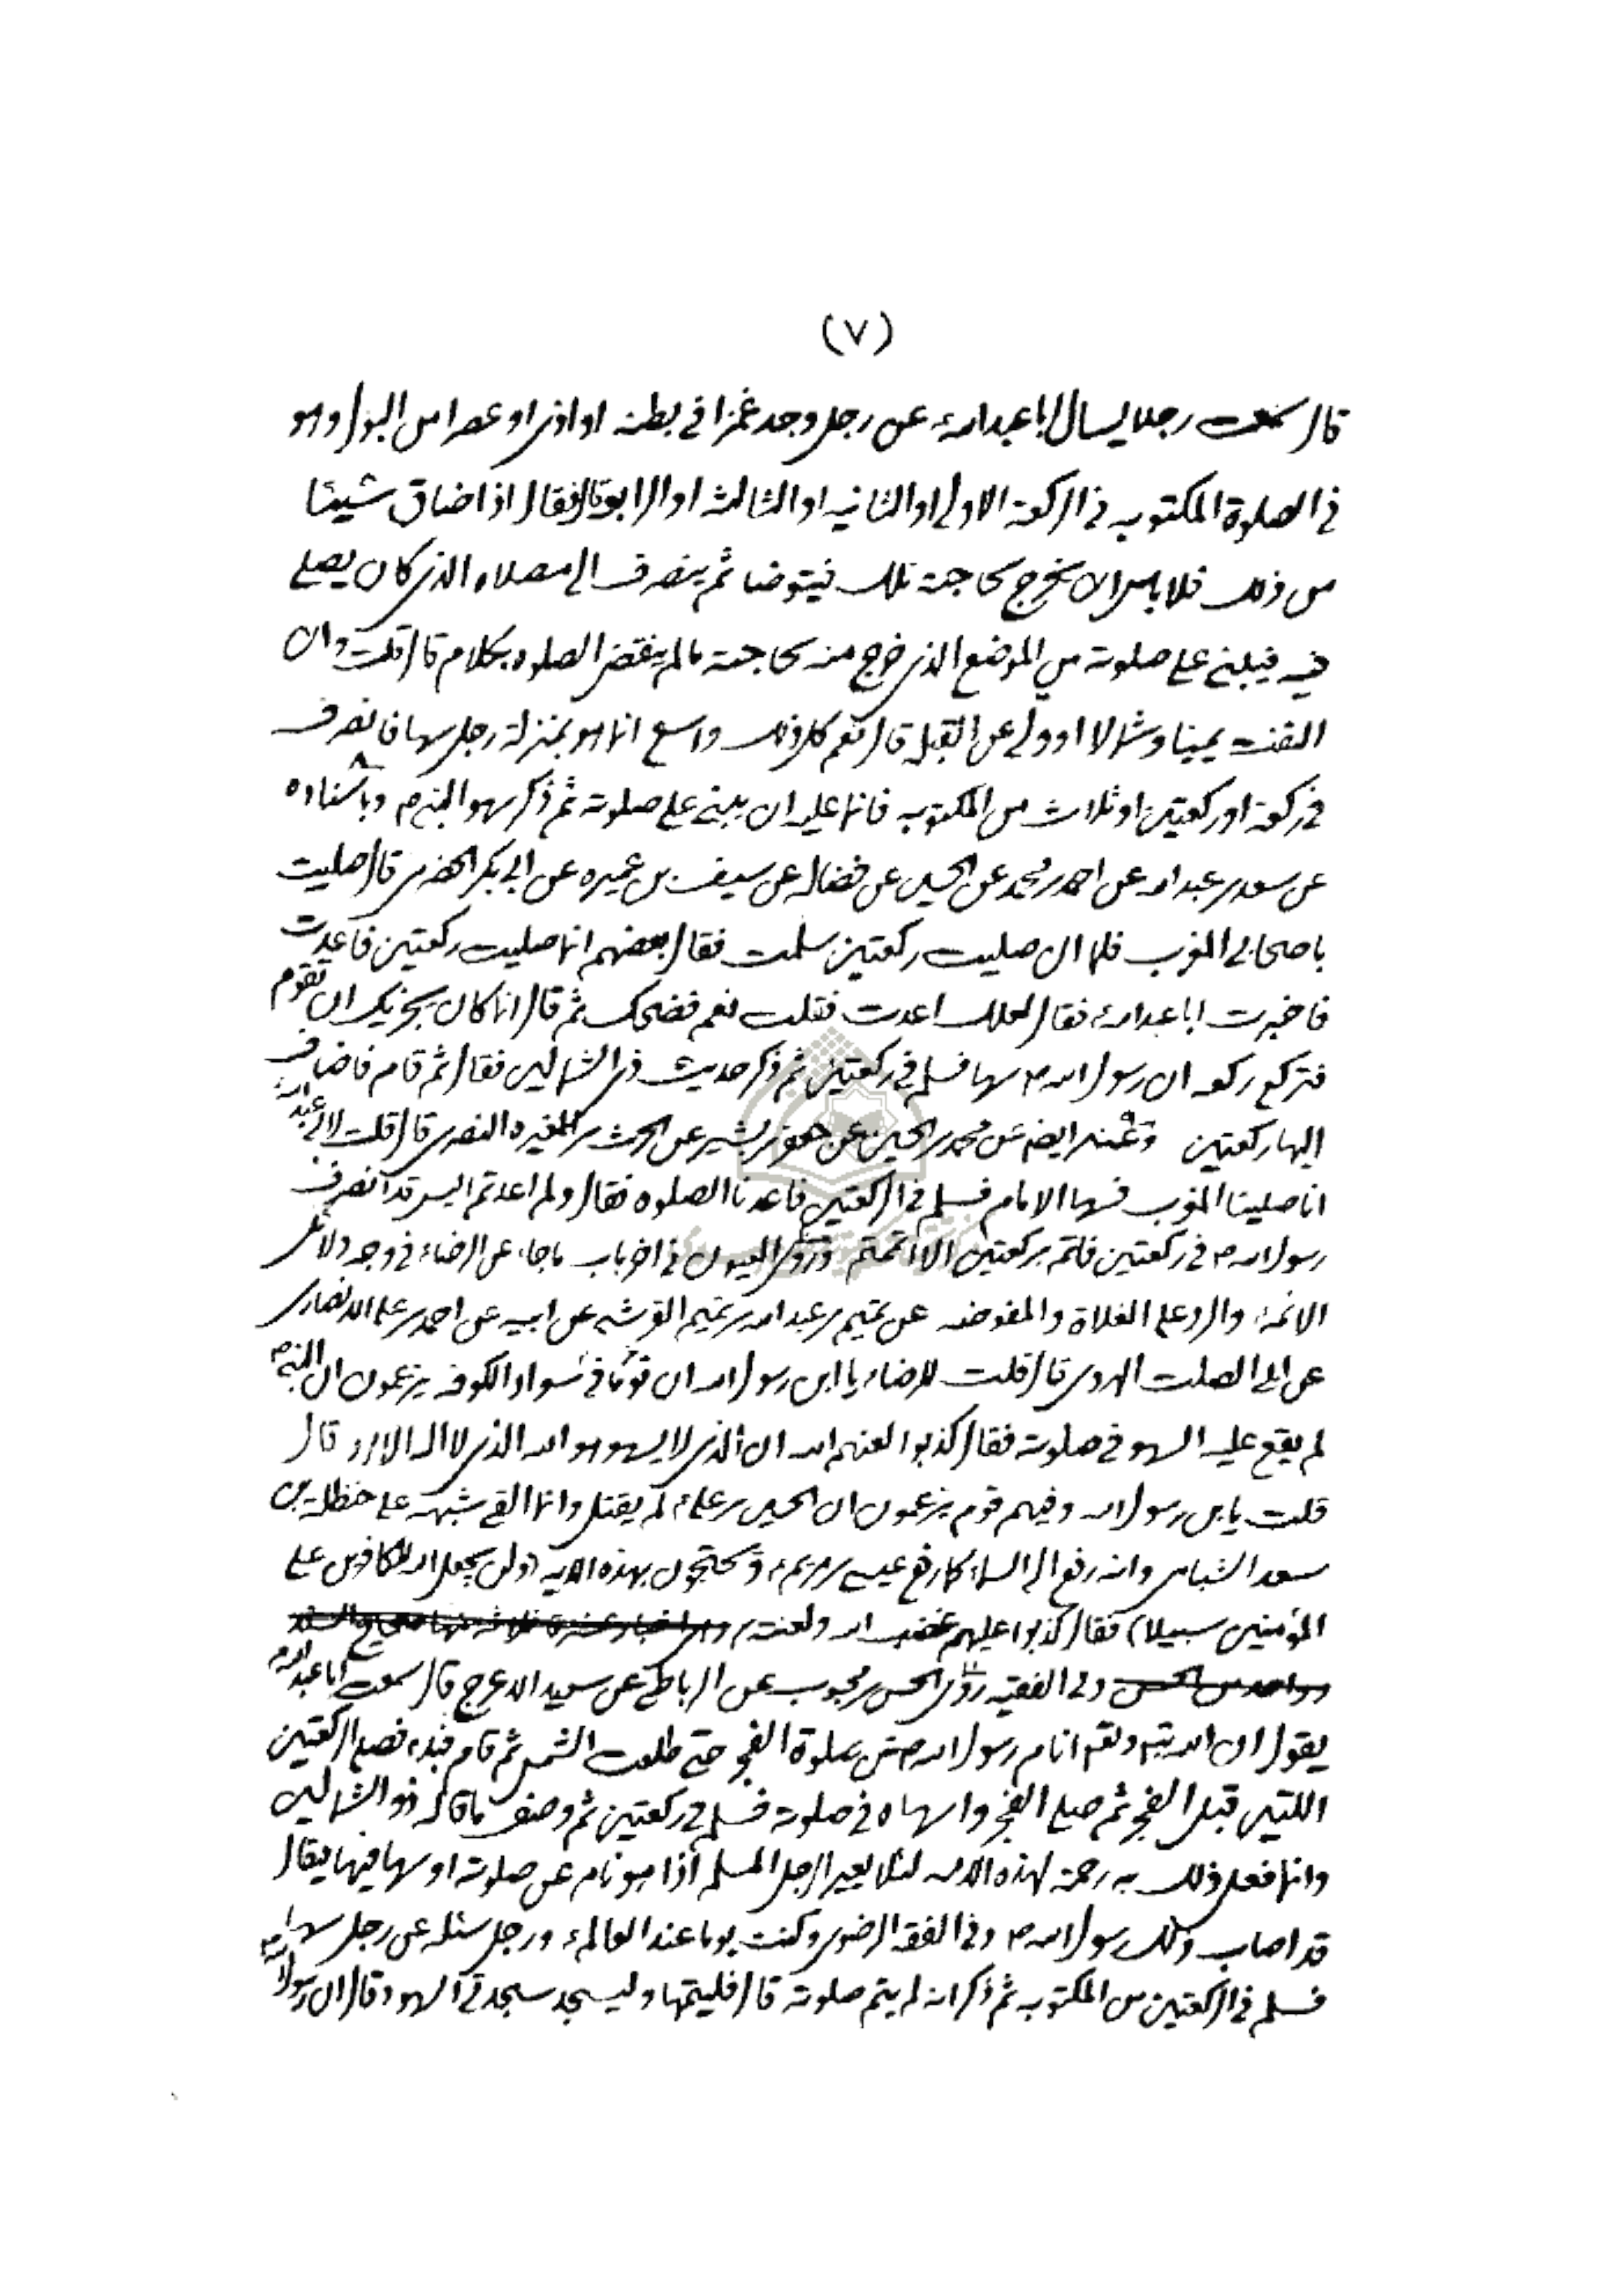 (٧)
قال سمعت رجلا يسال اباعبدالله ع عن رجل وجد غمزا فى بطنه او اذى او عصرا من البول وهو
فى الصلوة المكتوبه فى الركعة الاولى او الثانيه او الثالثه او الرابعة قال فقال اذا اضاق شيئا
من ذلك فلا باس ان يخرج لحاجته تلك فيتوضا ثم ينصرف الى مصلاه الذى كان يصلى
فيه فيبنى على صلوته من الموضع الذى خرج منه لحاجته مالم ينقض الصلوه بكلام قال قلت وان
التفت يمينا وشمالا او ولى عن القبله قال نعم كل ذلك واسع انما هو بمنزلة رجل سها فانصرف
فى ركعة او ركعتين او ثلاث من المكتوبه فانما عليه ان يبنى على صلوته ثم ذكر سهو النبى ص وباسناده
عن سعد بن عبدالله عن احمد بن محمد عن الحسين عن فضاله عن سيف بن عميره عن ابى بكر الحضرمى قال صليت
باصحابى المغرب فلما ان صليت ركعتين سلمت فقال بعضهم انما صليت ركعتين فاعدت
فاخبرت اباعبدالله ع فقال لعلك اعدت فقلت نعم فضحك ثم قال انما كان يجزيك ان تقوم
فتركع ركعه ان رسول الله ص سها فسلم فى ركعتين ثم ذكر حديث ذى الشمالين فقال ثم قام فاضاف
اليها ركعتين وعنه ايضا عن محمد بن الحسين عن جعفر بن بشير عن الحرث بن المغيره النصرى قال قلت لابى عبدالله ع
انا صلينا المغرب فسها الامام فسلم فى الركعتين فاعدنا الصلوه فقال ولم اعدتم اليس قد انصرف
رسول الله ص فى ركعتين فاتم بركعتين الا اتممتم وروى العيون فى اخر باب ماجاء عن الرضا ع فى وجه دلائل
الائمة ع والرد على الغلاة والمفوضه عن تميم بن عبدالله بن تميم القرشى عن ابيه عن احمد بن على الانصارى
عن ابى الصلت الهروى قال قلت للرضا ع يا ابن رسول الله ان قوما فى سواد الكوفه يزعمون ان النبى ص
لم يقع عليه السهو فى صلوته فقال كذبوا لعنهم الله ان الذى لا يسهو هو الله الذى لا اله الا هو قال
قلت يابن رسول الله وفيهم قوم يزعمون ان الحسين بن على ع لم يقتل وانما القى شبهه على حنظلة بن
سعد الشبامى وانه رفع الى السماء كما رفع عيسى بن مريم ع ويحتجون بهذه الايه (ولن يجعل الله للكافرين على
المؤمنين سبيلا) فقال كذبوا عليهم غضب الله ولعنته
وفى الفقيه روى الحسن بن محبوب عن الرباطى عن سعيد الاعرج قال سمعت اباعبدالله ع
يقول ان الله تبارك وتعالى انام رسول الله ص عن صلوة الفجر حتى طلعت الشمس ثم قام فبدء فصلى الركعتين
اللتين قبل الفجر ثم صلى الفجر واسهاه فى صلوته فسلم فى ركعتين ثم وصف ما قاله ذو الشمالين
وانما فعل ذلك به رحمة لهذه الامه لئلا يعير الرجل المسلم اذا هو نام عن صلوته او سها فيها فيقال
قد اصاب ذلك رسول الله ص وفى الفقه الرضوى وكنت يوما عند العالم ع ورجل سئله عن رجل سها
فسلم فى الركعتين من المكتوبه ثم ذكر انه لم يتم صلوته قال فليتمها وليسجد سجدتى السهو وقال ان رسول الله ص